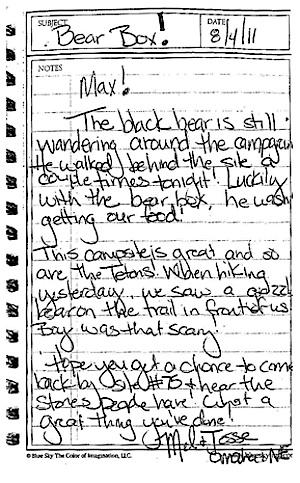 SUBJECT Bear Box! DATE 8/4/11
NOTES
Max!
The black bear is still
wandering around the
He walked behind the site a
couple times tonight! Luckily
with the bear box, he
getting our food!
This campsite is great and so
are the Tetons! When hiking
yesterday, we saw a
bear on the trail in front of us.
Boy was that scary!
Hope you get a chance to come
back by site #75 & hear the
stories people have! What a
great thing you've done!
Mel & Jesse
Omaha, NE
© Blue Sky The Color of Imagination, LLC.